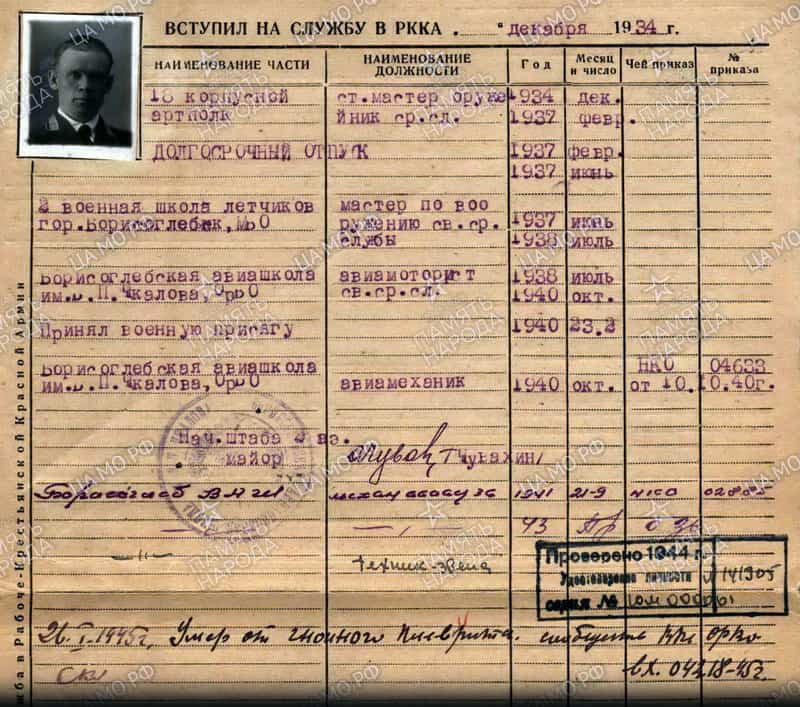 ВСТУПИЛ НА СЛУЖБУ В РККА . " декабря 1934 г.
НАИМЕНОВАНИЕ ЧАСТИ НАИМЕНОВАНИЕ ДОЛЖНОСТИ Год Месяц и число Чей приказ № приказа
18 корпусной ст.мастер оруже 1934 дек.
артполк йник ср.сл. 1937 февр.
ДОЛГОСРОЧНЫЙ ОТПУСК 1937 февр.
1937 июнь
2 военная школа летчиков мастер по воо
гор.Борисоглебск,МВО ружению св.ср. 1937 июнь
службы 1938 июль
Борисоглебская авиашкола авиамоторист 1938 июль
им.В.П.Чкалова,ОрВО св.ср.сл. 1940 окт.
Принял военную присягу 1940 23.2
Борисоглебская авиашкола НКО 04633
им.В.П.Чкалова,ОрВО авиамеханик 1940 окт. от 10.10.40г.
Нач.штаба 2 вэ.
майор /Чувахин/
1941 21-9 02885
—"— 43
—"— техник-звена
Проверено 1944 г.
Удостоверение личности № 141305
серия №
26.I-1945г. Умер от гнойного плеврита.
вх. 04218-45г.
жба в Рабоче-Крестьянской Красной Армии
ПАМЯТЬ НАРОДА
ЦА МО.РФ